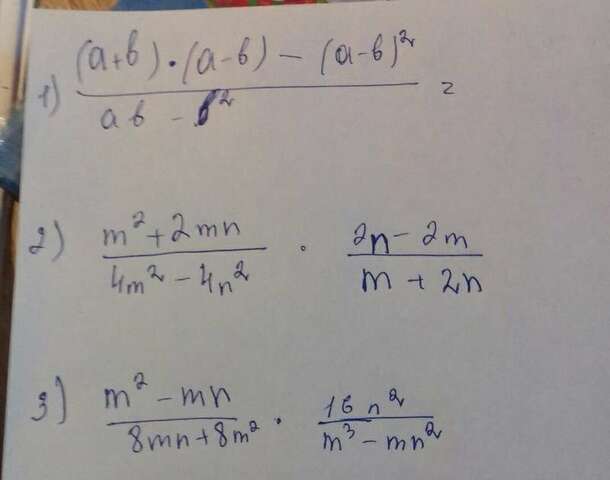 1) ((a+b)·(a-b) - (a-b)²)/(ab - b²) =
2) (m² + 2mn)/(4m² - 4n²) · (2n - 2m)/(m + 2n)
3) (m² - mn)/(8mn + 8m²) · (16n²)/(m³ - mn²)